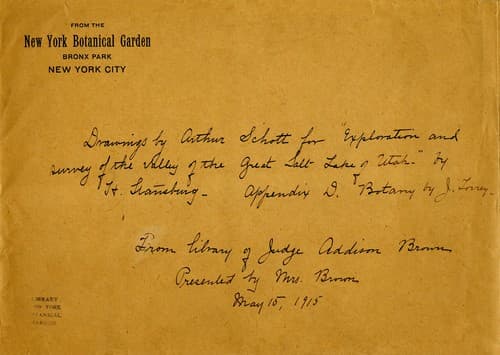 FROM THE
New York Botanical Garden
BRONX PARK
NEW YORK CITY
Drawings by Arthur Schott for "Exploration and
survey of the valley of the Great Salt Lake of Utah." by
H. Stansbury - Appendix D. Botany by J. Torrey -
From library of Judge Addison Brown
Presented by Mrs. Brown
May 15, 1915
LIBRARY
NEW YORK
BOTANICAL
GARDEN